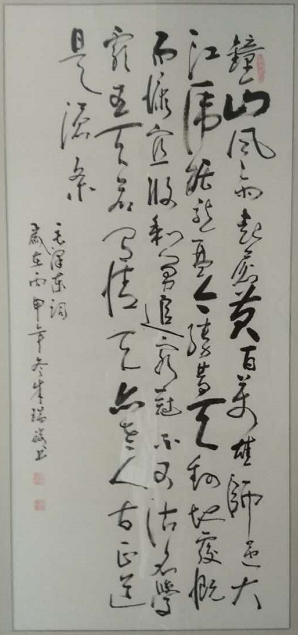 鐘山风雨起蒼黄百万雄師过大
江虎踞龍盘今勝昔天翻地覆慨
而慷宜将剩勇追窮寇不可沽名學
霸王天若有情天亦老人间正道
是滄桑
毛澤東词
歲在丙申年冬书